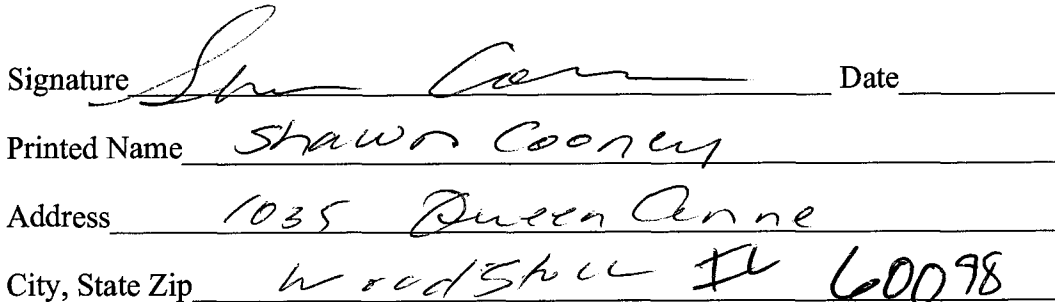 Signature Shawn Cooney Date
Printed Name Shawn Cooney
Address 1035 Queen Anne
City, State Zip Woodstock IL 60098